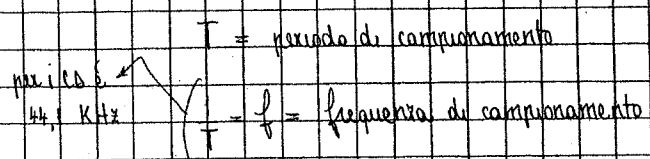 T = periodo di campionamento
per i CD è
44,1 KHz
1/T = f = frequenza di campionamento